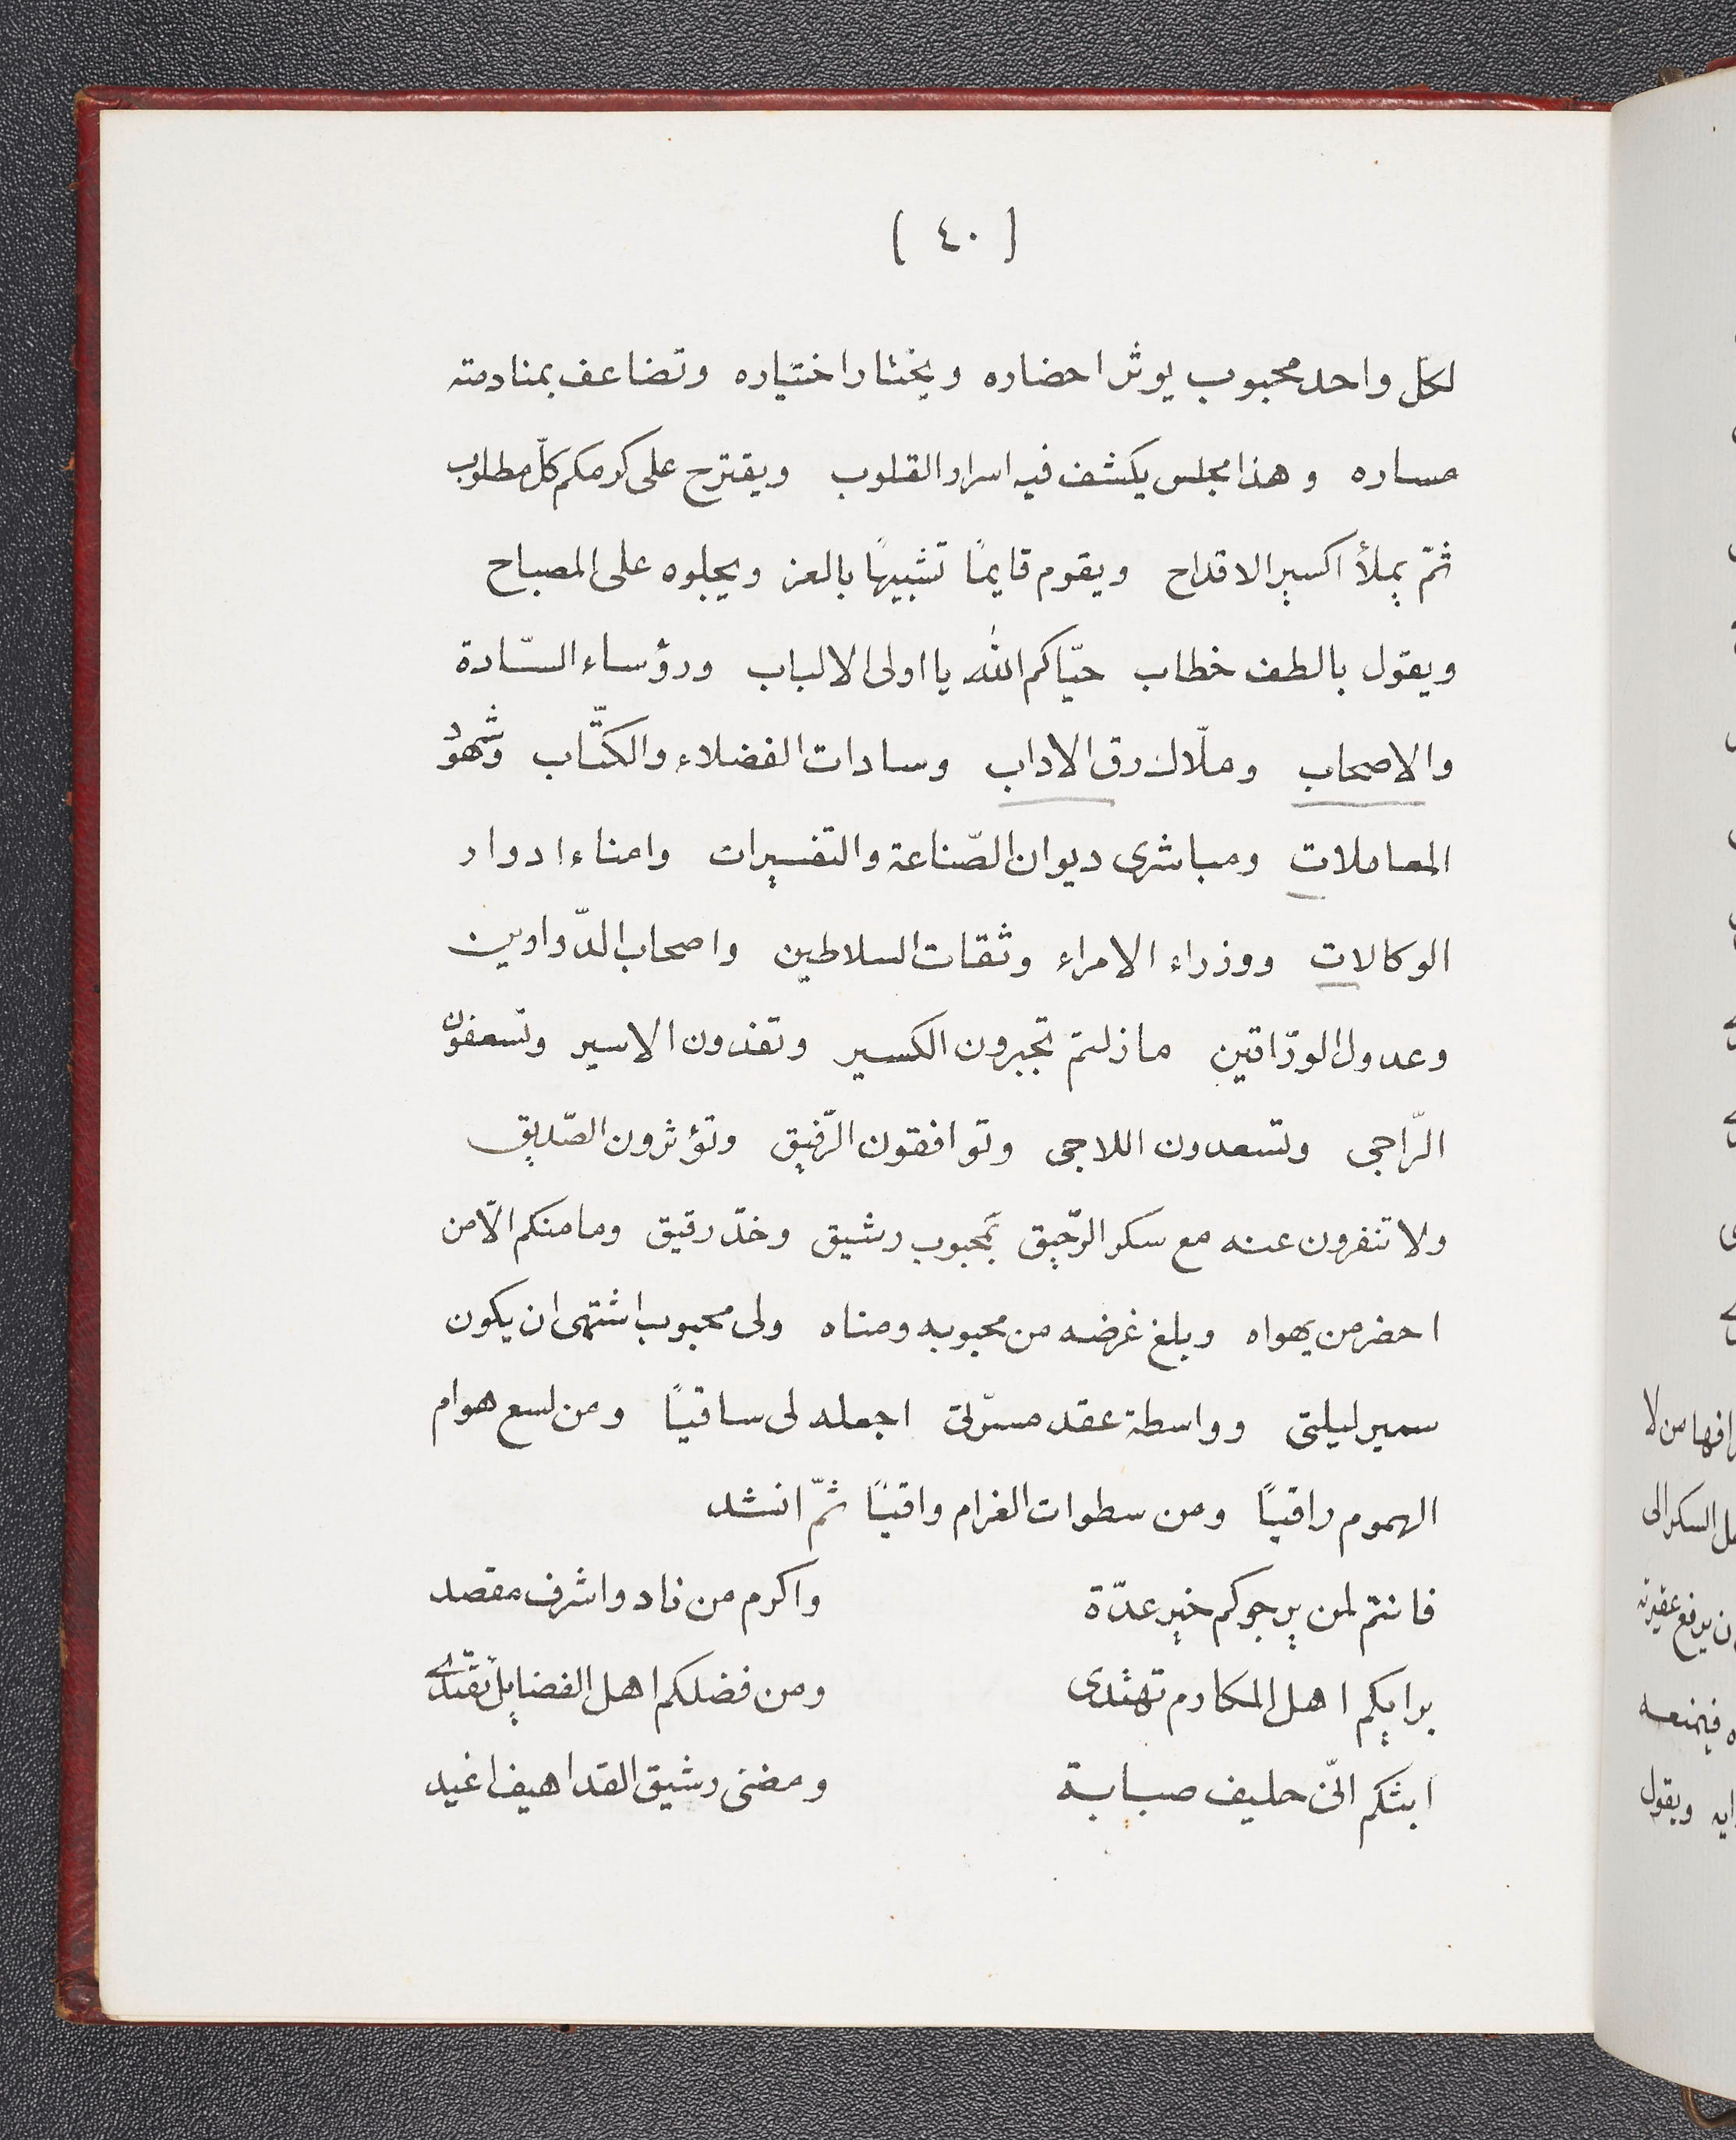 ( ٤٠ )
لكل واحد محبوب يوثر احضاره ويختار اختياره وتضاعف بمنادمته
مساره وهذا مجلس يكشف فيه اسرار القلوب ويقترح على كرمكم كلّ مطلوب
ثمّ يملأ اكسير الاقداح ويقوم قايمًا تشبيهًا بالعز ويجلوه على المصباح
ويقول بالطف خطاب حيّاكم الله يا اولى الالباب ورؤساء السّادة
والاصحاب وملّاك رق الاداب وسادات الفضلاء والكتّاب وشهود
المعاملات ومباشرى ديوان الصّناعة والتفسيرات وامناء ادوار
الوكالات ووزراء الامراء وثقات السلاطين واصحاب الدّواوين
وعدول الورّاقين مازلتم تجبرون الكسير وتفدون الاسير وتسعفون
الرّاجى وتسعدون اللاجى وتوافقون الرّفيق وتؤثرون الصّديق
ولا تنفرون عنه مع سكر الرّحيق بمحبوب رشيق وخدّ رقيق ومامنكم الّا من
احضر من يهواه وبلغ غرضه من محبوبه ومناه ولى محبوب اشتهى ان يكون
سمير ليلتى وواسطة عقد مسرّتى اجعله لى ساقيًا ومن لسع هوام
الهموم راقيًا ومن سطوات الغرام واقيًا ثمّ انشد
فانتم لمن يرجوكم خير عدّة واكرم من ناد واشرف مقصد
برايكم اهل المكارم تهتدى ومن فضلكم اهل الفضايل تقتدى
ابثكم انّى حليف صبابة ومضنى رشيق القد اهيف اغيد